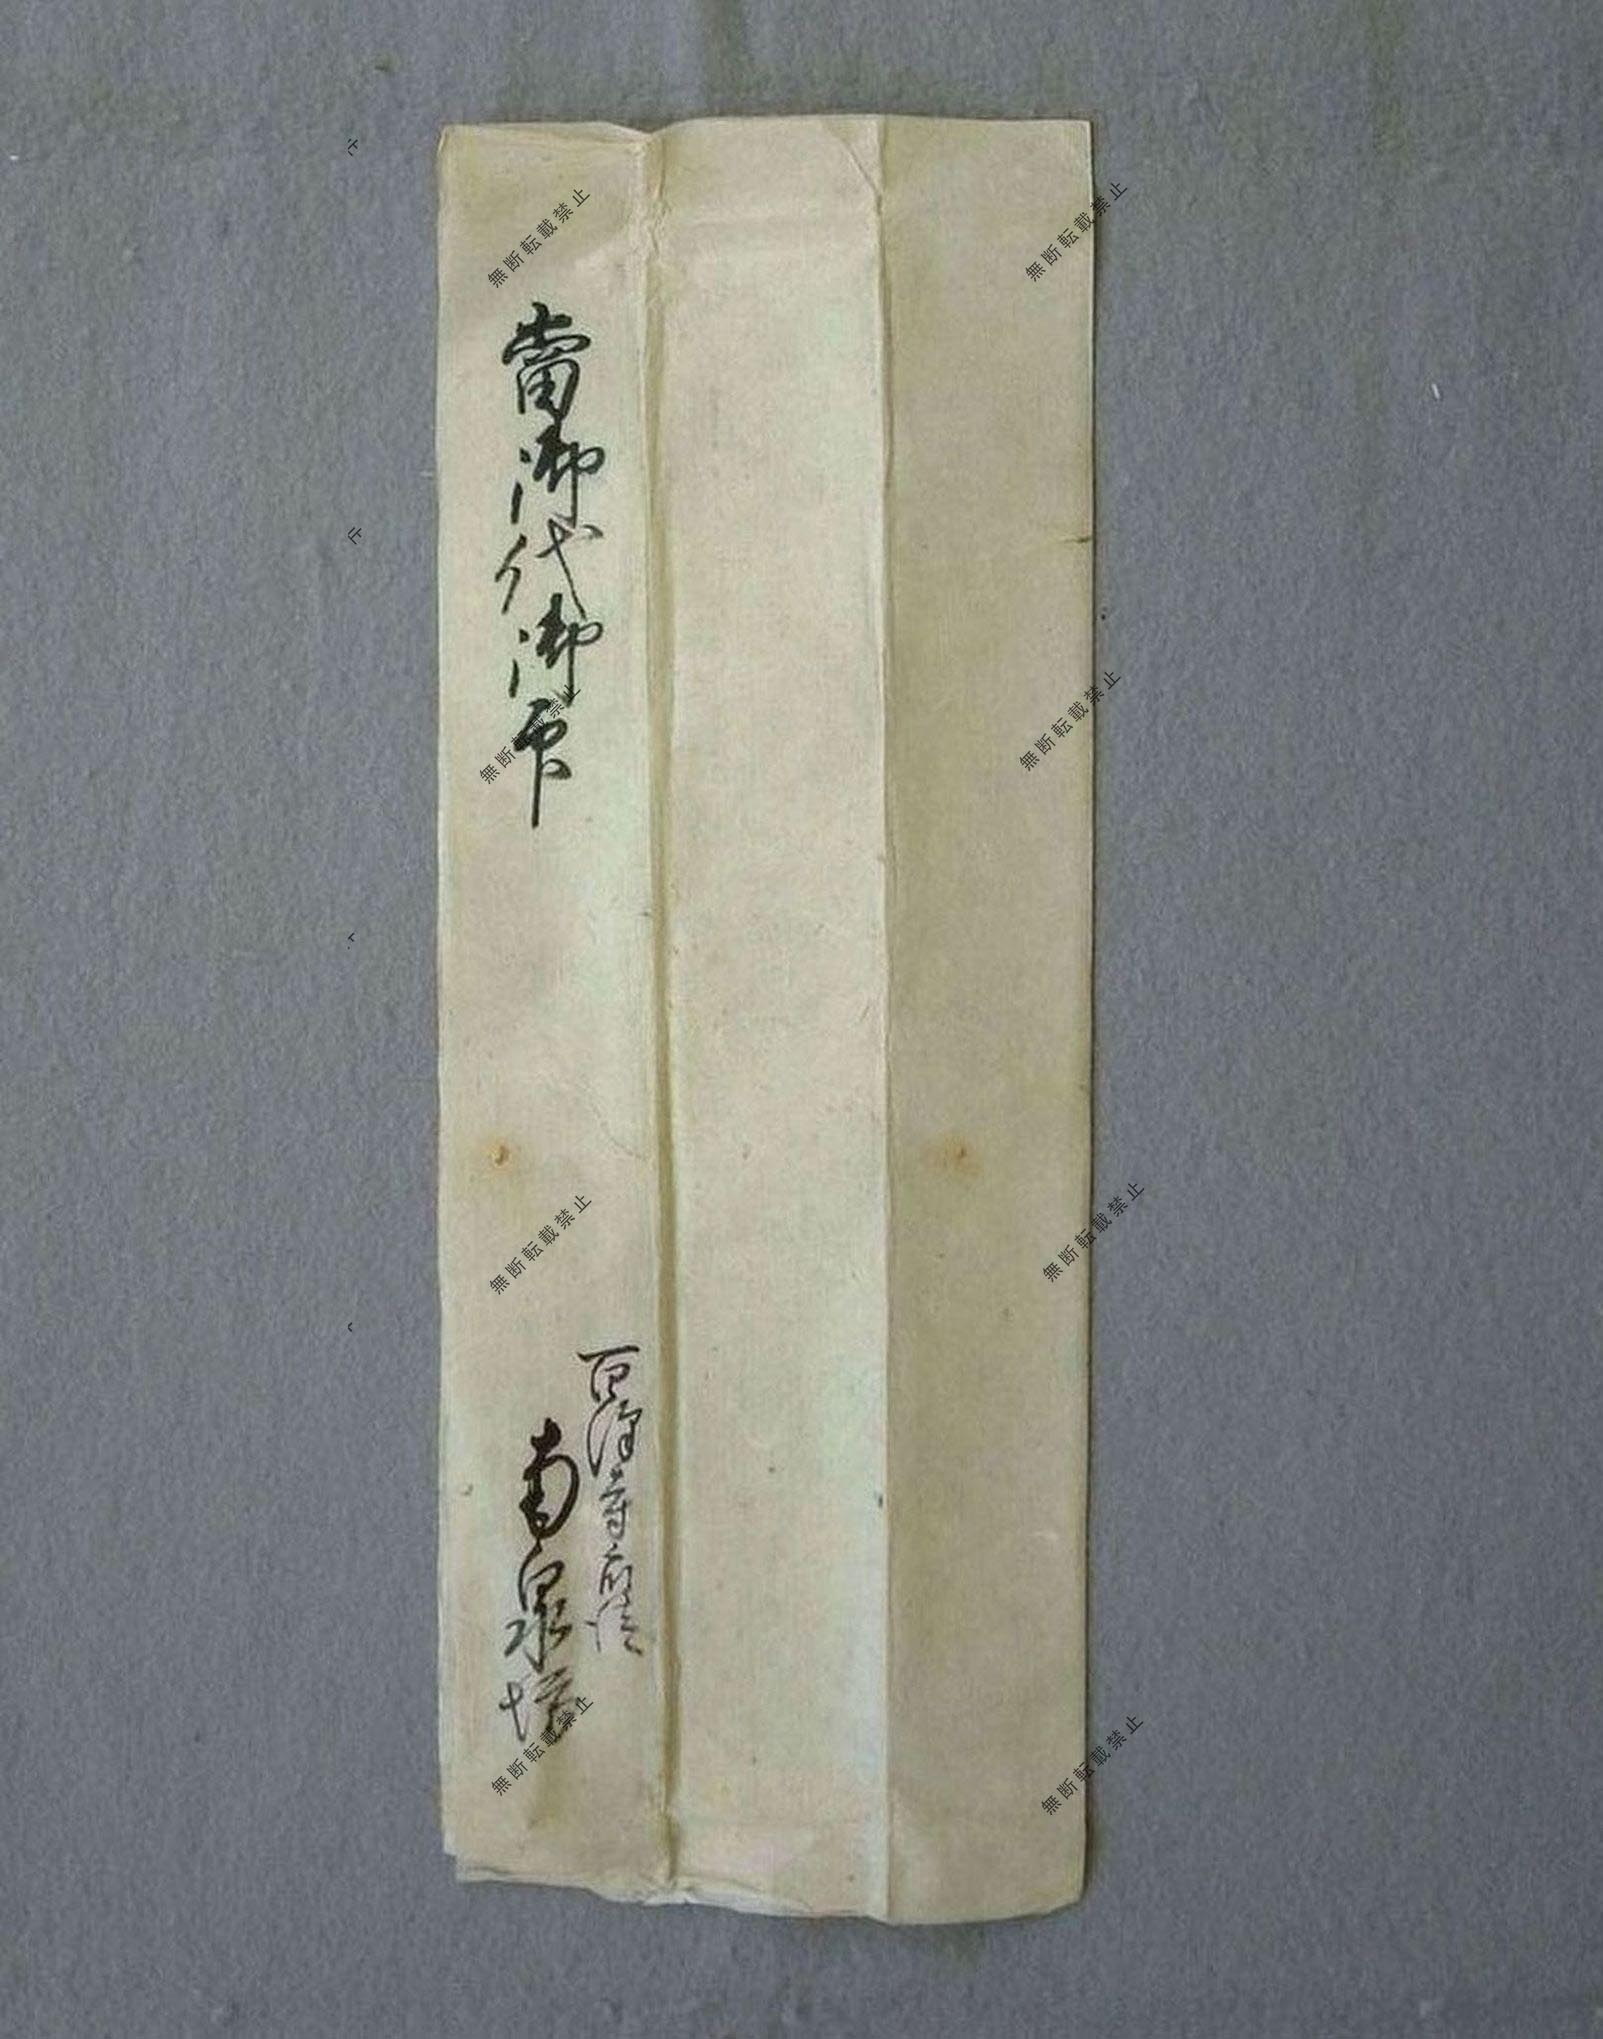 當御代御印
百濟寺
南泉坊
無断転載禁止
無断転載禁止
無断転載禁止
無断転載禁止
無断転載禁止
無断転載禁止
無断転載禁止
無断転載禁止